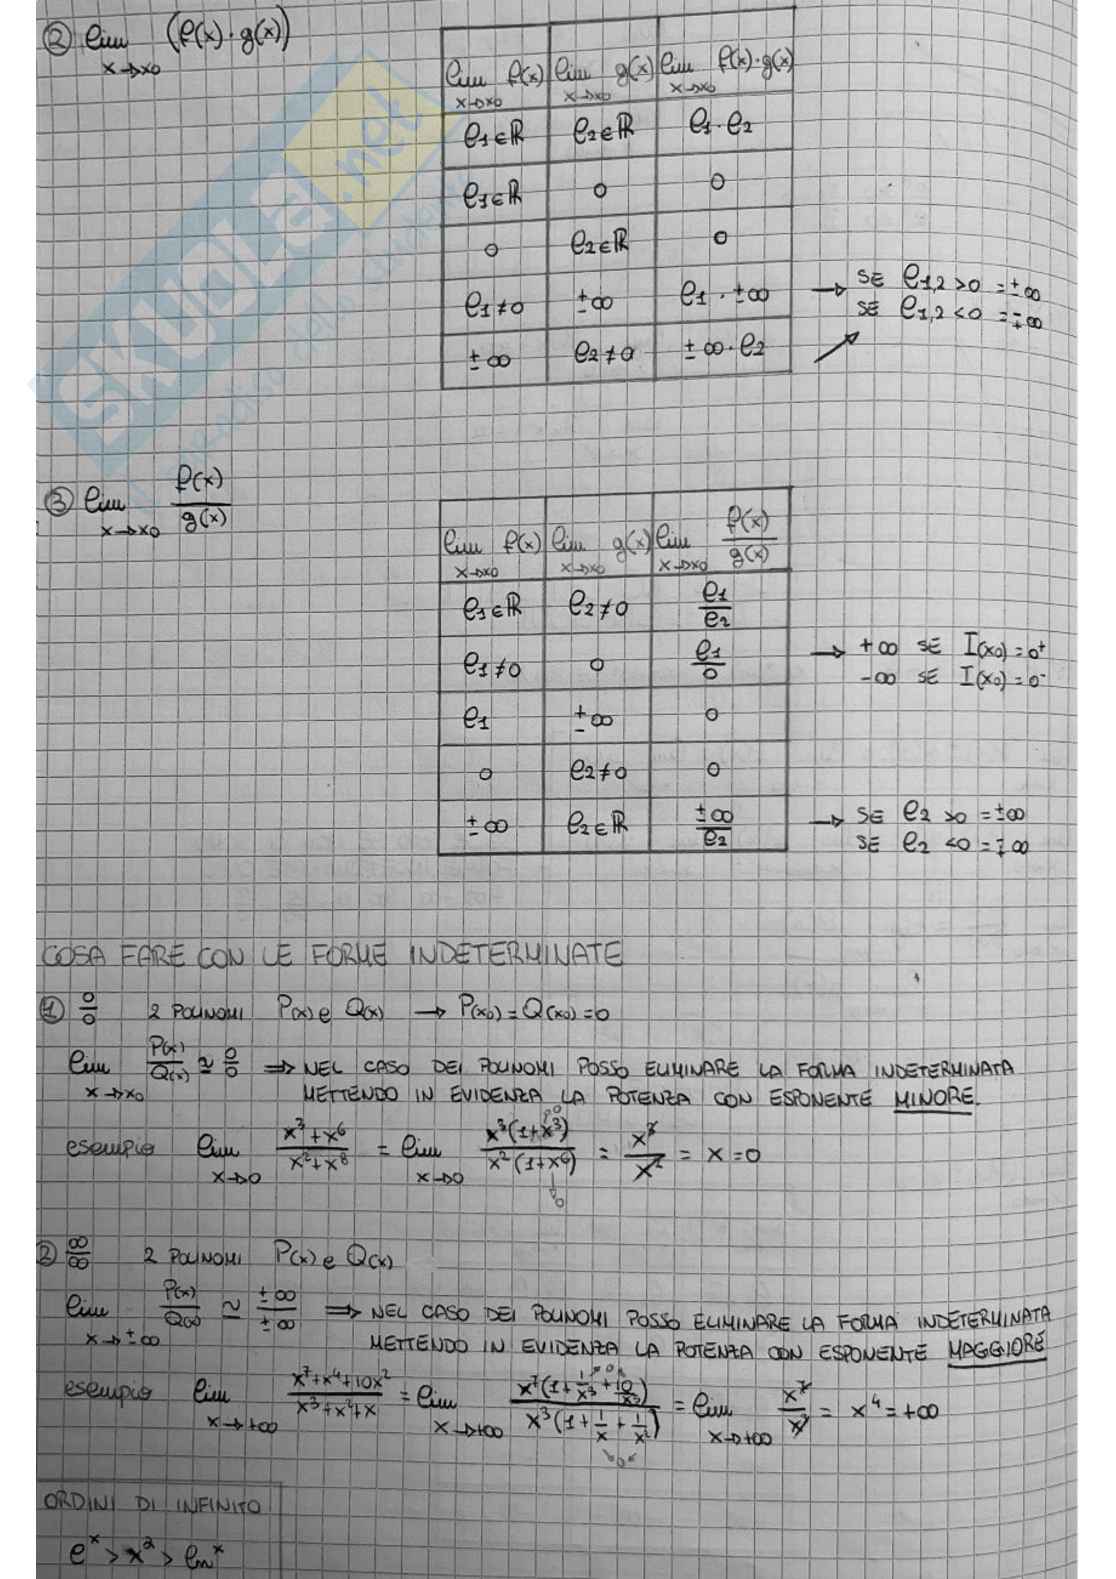 ② lim x→x0 (f(x)·g(x))
lim x→x0 f(x) | lim x→x0 g(x) | lim x→x0 f(x)·g(x)
l1∈ℝ | l2∈ℝ | l1·l2
l1∈ℝ | 0 | 0
0 | l2∈ℝ | 0
l1≠0 | ±∞ | l1·±∞ → SE l1,2>0 =±∞
SE l1,2<0 =∓∞
±∞ | l2≠0 | ±∞·l2
SKUOLA.net
③ lim x→x0 f(x)/g(x)
lim x→x0 f(x) | lim x→x0 g(x) | lim x→x0 f(x)/g(x)
l1∈ℝ | l2≠0 | l1/l2
l1≠0 | 0 | l1/0 → +∞ SE I(x0)=0⁺
-∞ SE I(x0)=0⁻
l1 | ±∞ | 0
0 | l2≠0 | 0
±∞ | l2∈ℝ | ±∞/l2 → SE l2>0 =±∞
SE l2<0 =∓∞
COSA FARE CON LE FORME INDETERMINATE
① 0/0 2 POLINOMI P(x) e Q(x) → P(x0)=Q(x0)=0
lim x→x0 P(x)/Q(x) ≃ 0/0 ⇒ NEL CASO DEI POLINOMI POSSO ELIMINARE LA FORMA INDETERMINATA
METTENDO IN EVIDENZA LA POTENZA CON ESPONENTE MINORE.
esempio lim x→0 (x³+x⁶)/(x²+x⁸) = lim x→0 x³(1+x³)/x²(1+x⁶) = x³/x² = x=0
② ∞/∞ 2 POLINOMI P(x) e Q(x)
lim x→±∞ P(x)/Q(x) ≃ ±∞/±∞ ⇒ NEL CASO DEI POLINOMI POSSO ELIMINARE LA FORMA INDETERMINATA
METTENDO IN EVIDENZA LA POTENZA CON ESPONENTE MAGGIORE
esempio lim x→+∞ (x⁷+x⁴+10x²)/(x³+x²+x) = lim x→+∞ x⁷(1+1/x³+10/x⁵)/x³(1+1/x+1/x²) = lim x→+∞ x⁷/x³ = x⁴=+∞
ORDINI DI INFINITO
eˣ > x² > lnˣ